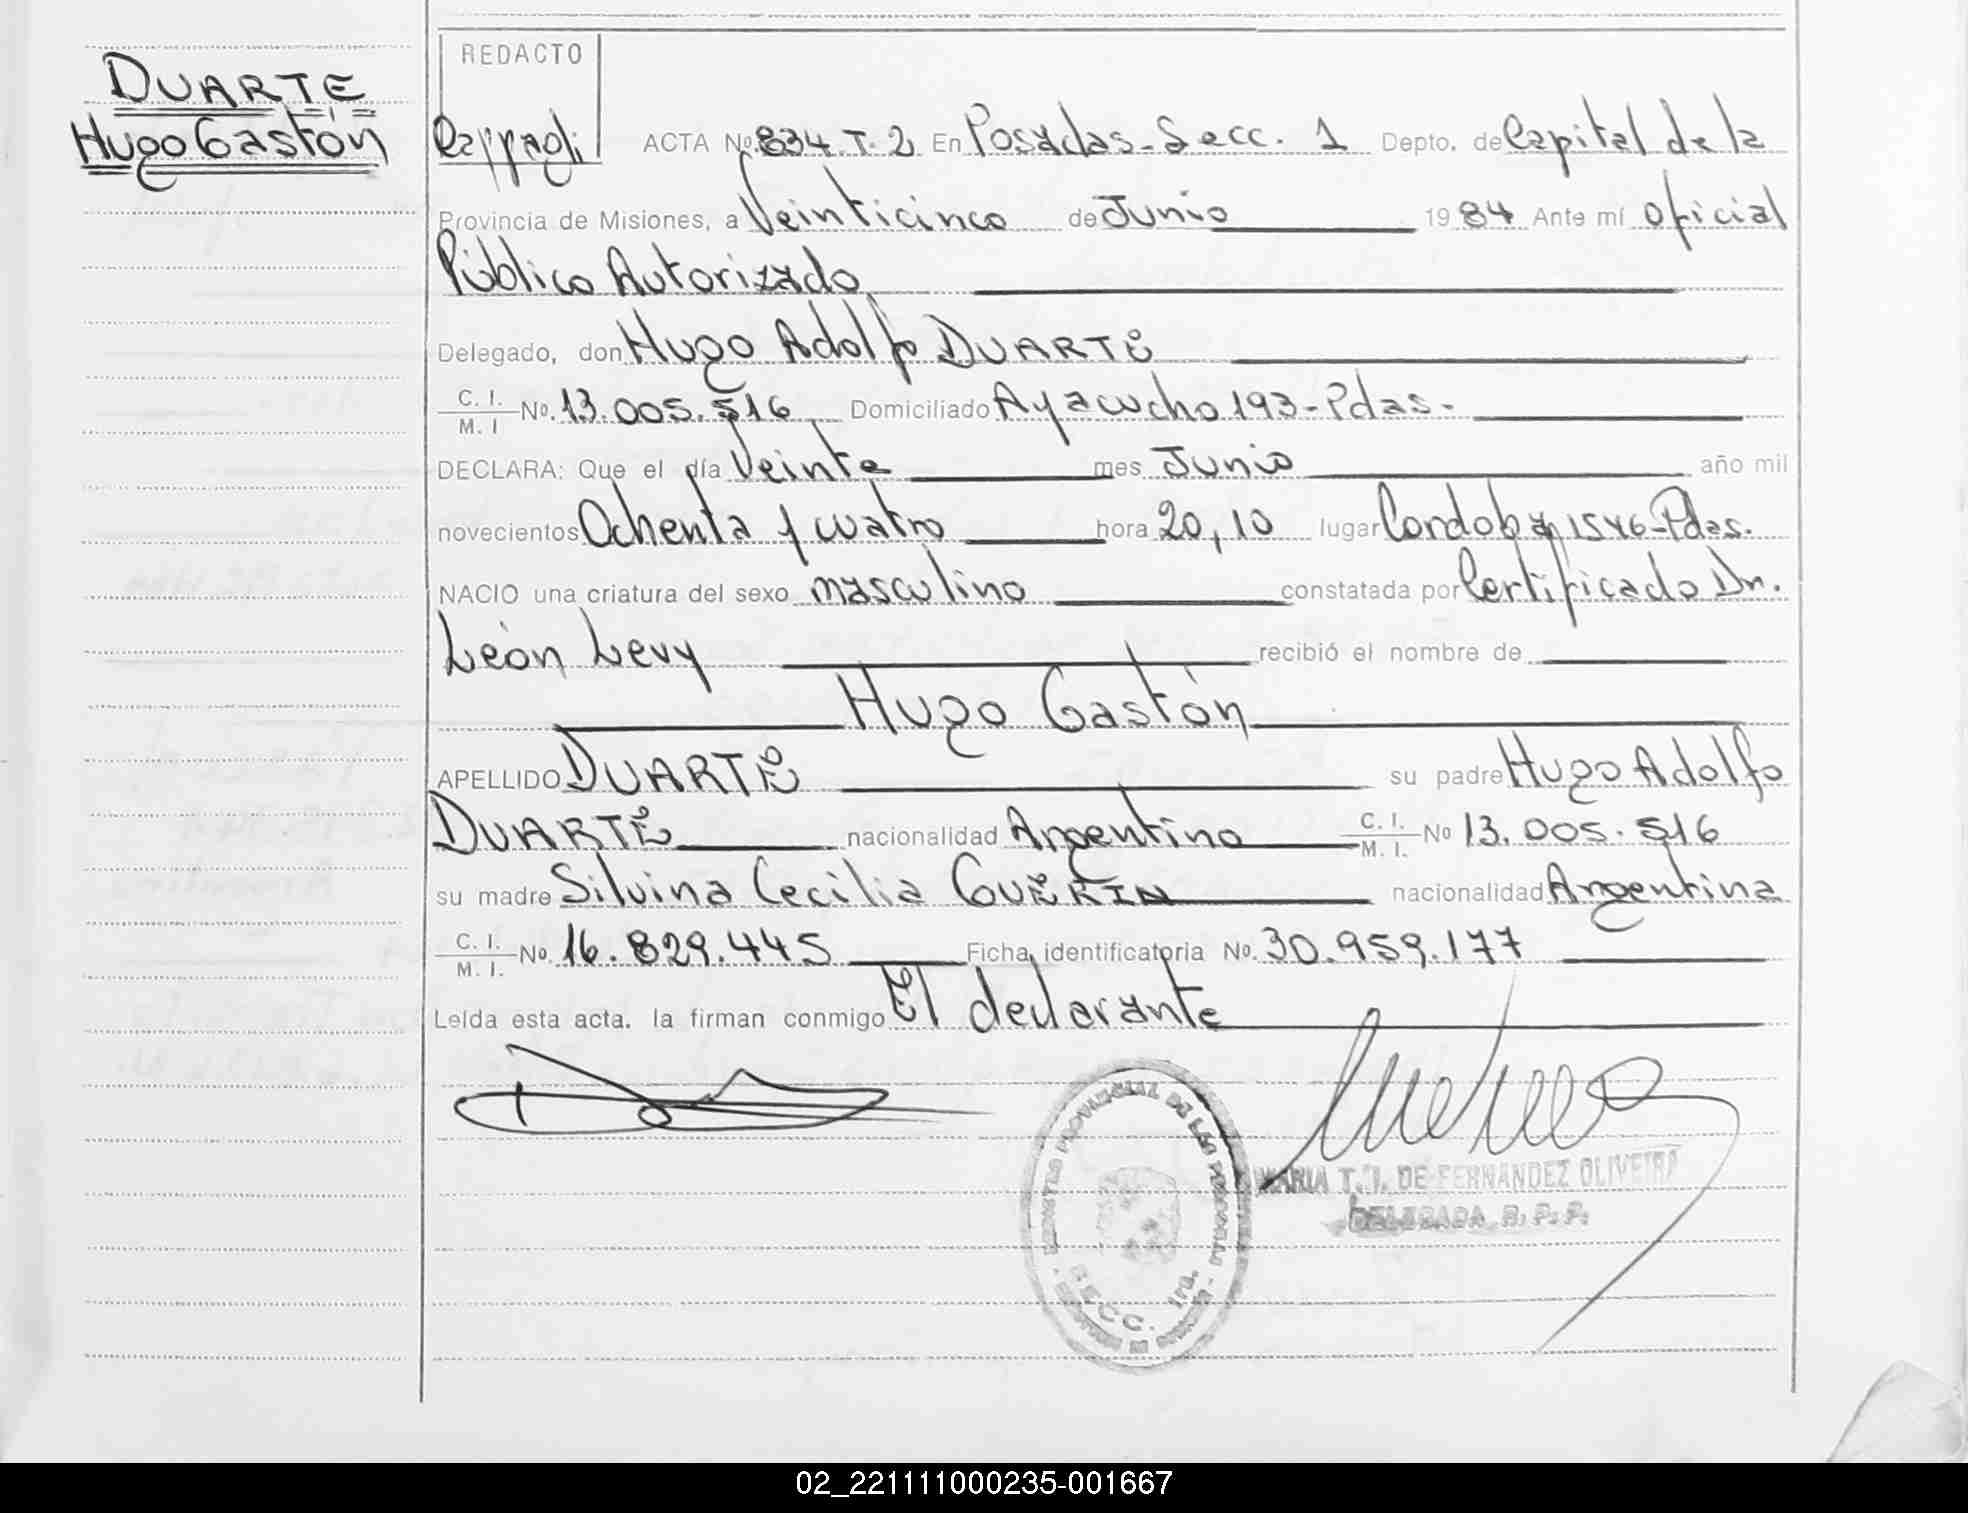 DUARTE
Hugo Gastón
REDACTO
ACTA Nº 834 T. 2 En Posadas - Secc. 1 Depto. de Capital de la
Provincia de Misiones, a Veinticinco de Junio 1984 Ante mí Oficial
Público Autorizado
Delegado, don Hugo Adolfo DUARTE
C. I. / M. I Nº. 13.005.516 Domiciliado Ayacucho 193 - Pdas -
DECLARA: Que el día Veinte mes Junio año mil
novecientos Ochenta y cuatro hora 20,10 lugar Cordoba 1546 - Pdas.
NACIO una criatura del sexo masculino constatada por Certificado Dr.
León Levy recibió el nombre de
Hugo Gastón
APELLIDO DUARTE su padre Hugo Adolfo
DUARTE nacionalidad Argentino C. I. / M. I. Nº 13.005.516
su madre Silvina Cecilia GUERIN nacionalidad Argentina
C. I. / M. I. Nº. 16.829.445 Ficha identificatoria Nº. 30.959.177
Leída esta acta. la firman conmigo El declarante
REGISTRO PROVINCIAL DE LAS PERSONAS
SECC. 1ra.
MARIA T. J. DE FERNANDEZ OLIVEIRA
DELEGADA R. P. P.
02_221111000235-001667